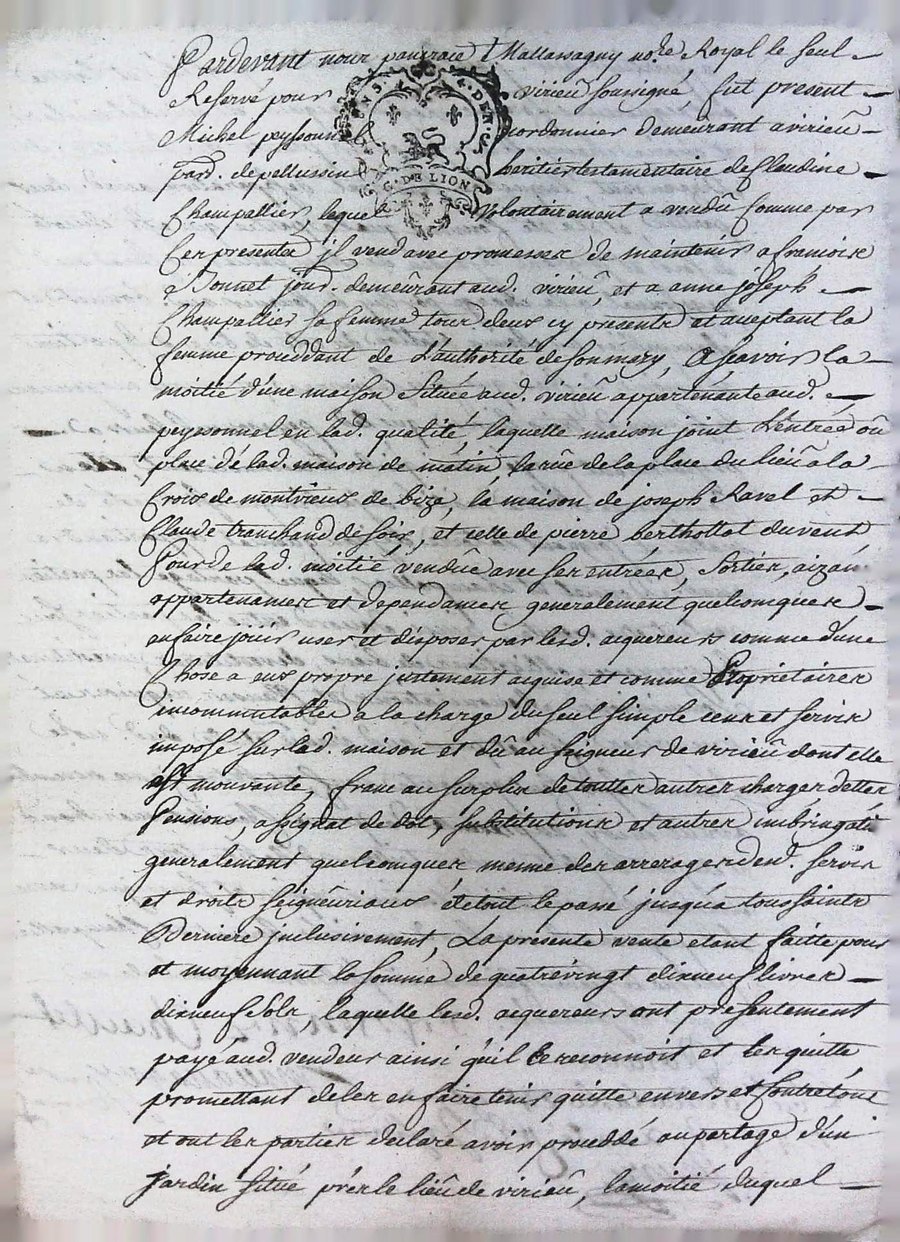 Pardevant nous françois Mallassagny no.re Royal le seul
Reservé pour virieu soussigné, fut present
Michel peyssonnel cordonnier demeurant a virieû
par.d de pellussin heritier testamentaire de Claudine
Champallier, lequel volontairement a vendû comme par
Ces presentes il vend avec promesses de maintenir a francois
Bonnet jour.r demeûrant aud. virieû, et a anne joseph
Champallier sa femme tous deux cy presents et aceptant la
femme proceddant de L'authorité de son mary, a scavoir la
moitié d'une maison située aud. virieû appartenante aud.
peyssonnel en lad. qualité, laquelle maison joint L'entrée oû
place de lad. maison de matin, la rûe de la place du lieû a la
Croix de montvieux de bize, la maison de joseph Ravel et
Claude tranchand de soir, et celle de pierre berthollat du vent
Pour de lad. moitié vendûe avec ses entrées, sorties, aizán
appartenances et dependances generalement quelconques
en faire joüir user et disposer par lesd. acquereurs comme d'une
Chose a eux propre justement acquise et comme Proprietaires
incommutables a la charge du seul simple cens et servis
imposé sur lad. maison et dû au seigneur de virieû dont elle
est mouvante, franc au surplus de touttes autres charges dettes
Pensions, assignat de dot, substitutions et autres imbringats
generalement quelconques meme des arrerages desd. servis
et droits seigneûriaux de tout le passé jusqu'a toussaints
Derniere jnclusivement, La presente vente etant faitte pour
et moyennant la somme de quatrevingt dixneuf livres
dixneuf sols, laquelle lesd. acquereurs ont presentement
payé aud. vendeur ainsi qu'il le reconnoit et les quitte
promettant de les en faire tenir quitte envers et Contre tous
et ont les parties declaré avoir proceddé au partage d'un
jardin situé prés le lieû de virieû, la moitié duquel
G. DE LION